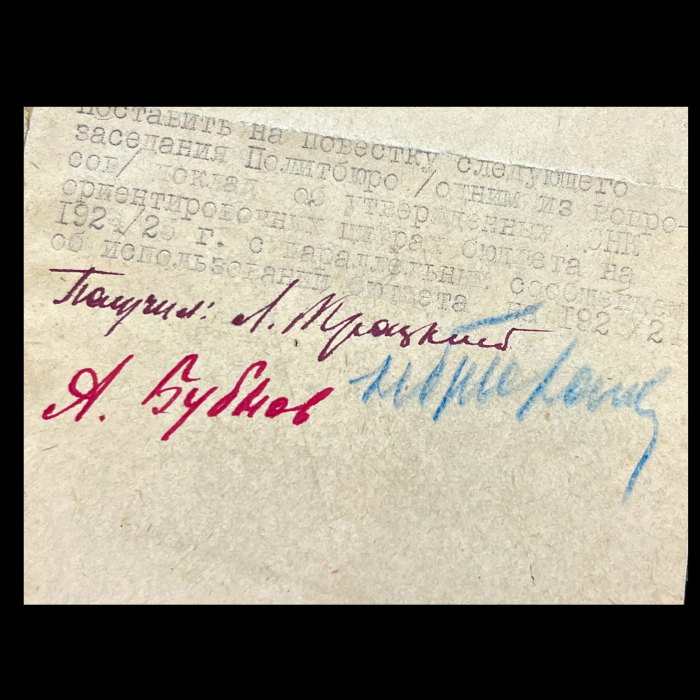 поставить на повестку следующего
заседания Политбюро /одним из вопро-
сов/ доклад об утвержденных СНК
ориентировочных цифрах бюджета на
г. с параллельным сообщением
об использовании бюджета
Получил: Л. Троцкий
А. Бубнов